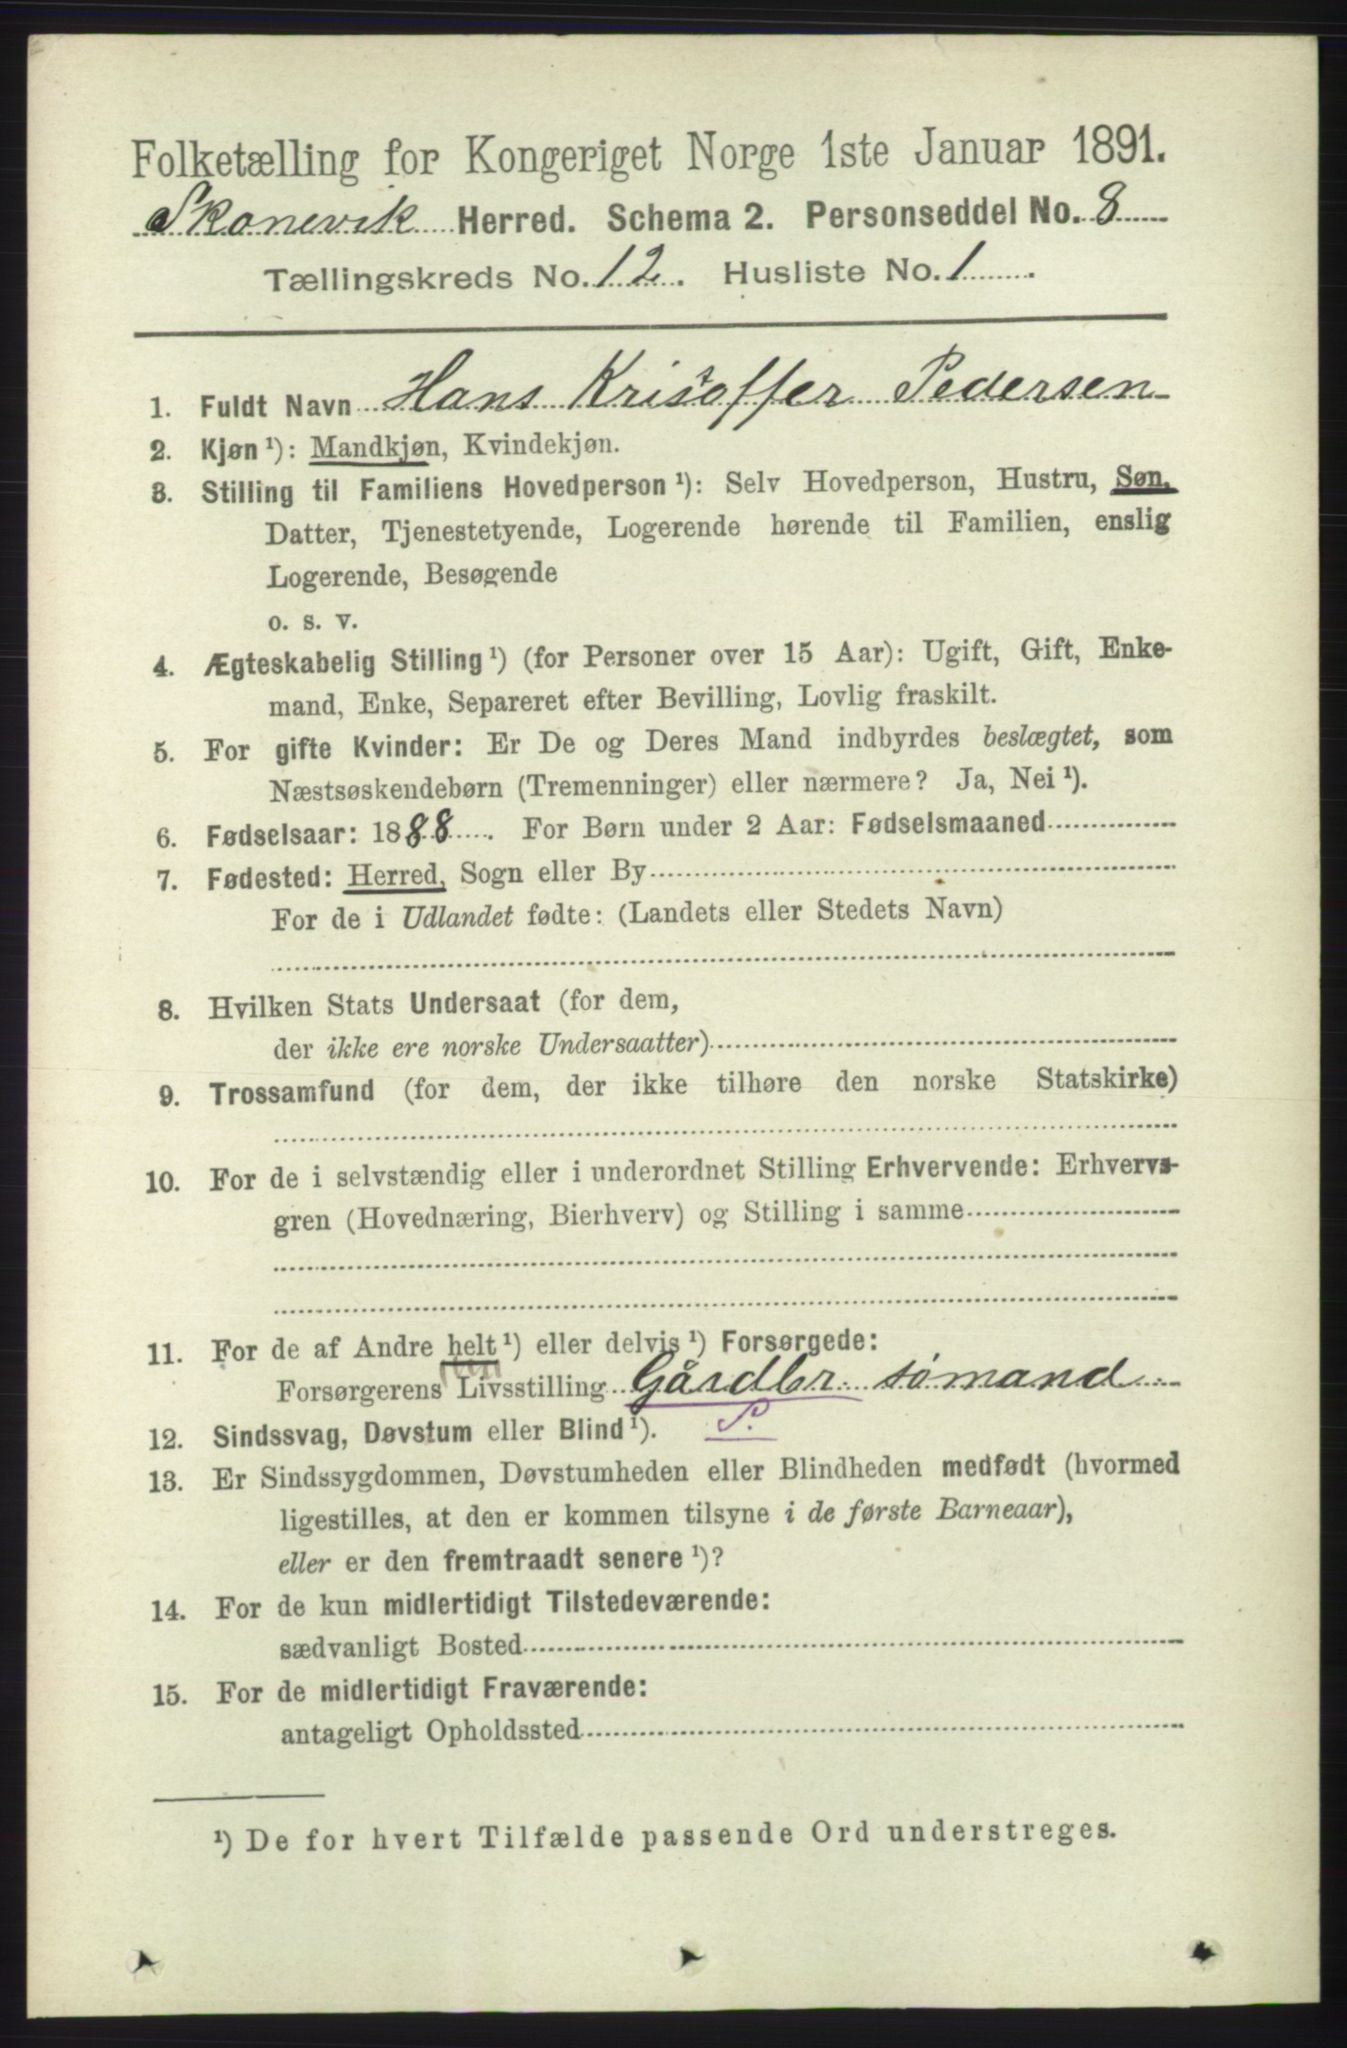 Folketælling for Kongeriget Norge 1ste Januar 1891.
Skonevik Herred. Schema 2. Personseddel No. 8
Tællingskreds No. 12. Husliste No. 1.
1. Fuldt Navn Hans Kristoffer Pedersen
2. Kjøn ¹): Mandkjøn, Kvindekjøn.
3. Stilling til Familiens Hovedperson ¹): Selv Hovedperson, Hustru, Søn,
Datter, Tjenestetyende, Logerende hørende til Familien, enslig
Logerende, Besøgende
o. s. v.
4. Ægteskabelig Stilling ¹) (for Personer over 15 Aar): Ugift, Gift, Enke-
mand, Enke, Separeret efter Bevilling, Lovlig fraskilt.
5. For gifte Kvinder: Er De og Deres Mand indbyrdes beslægtet, som
Næstsøskendebørn (Tremenninger) eller nærmere? Ja, Nei ¹).
6. Fødselsaar: 1888. For Børn under 2 Aar: Fødselsmaaned
7. Fødested: Herred, Sogn eller By
For de i Udlandet fødte: (Landets eller Stedets Navn)
8. Hvilken Stats Undersaat (for dem,
der ikke ere norske Undersaatter)
9. Trossamfund (for dem, der ikke tilhøre den norske Statskirke)
10. For de i selvstændig eller i underordnet Stilling Erhvervende: Erhvervs-
gren (Hovednæring, Bierhverv) og Stilling i samme
11. For de af Andre helt ¹) eller delvis ¹) Forsørgede:
Forsørgerens Livsstilling Gårdbr. sømand
12. Sindssvag, Døvstum eller Blind ¹). S.
13. Er Sindssygdommen, Døvstumheden eller Blindheden medfødt (hvormed
ligestilles, at den er kommen tilsyne i de første Barneaar),
eller er den fremtraadt senere ¹)?
14. For de kun midlertidigt Tilstedeværende:
sædvanligt Bosted
15. For de midlertidigt Fraværende:
antageligt Opholdssted
¹) De for hvert Tilfælde passende Ord understreges.